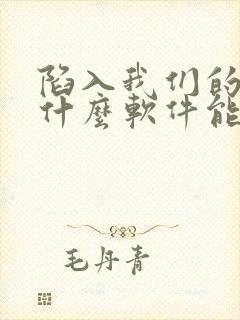 陷入我们的
什麼軟件能
毛丹青